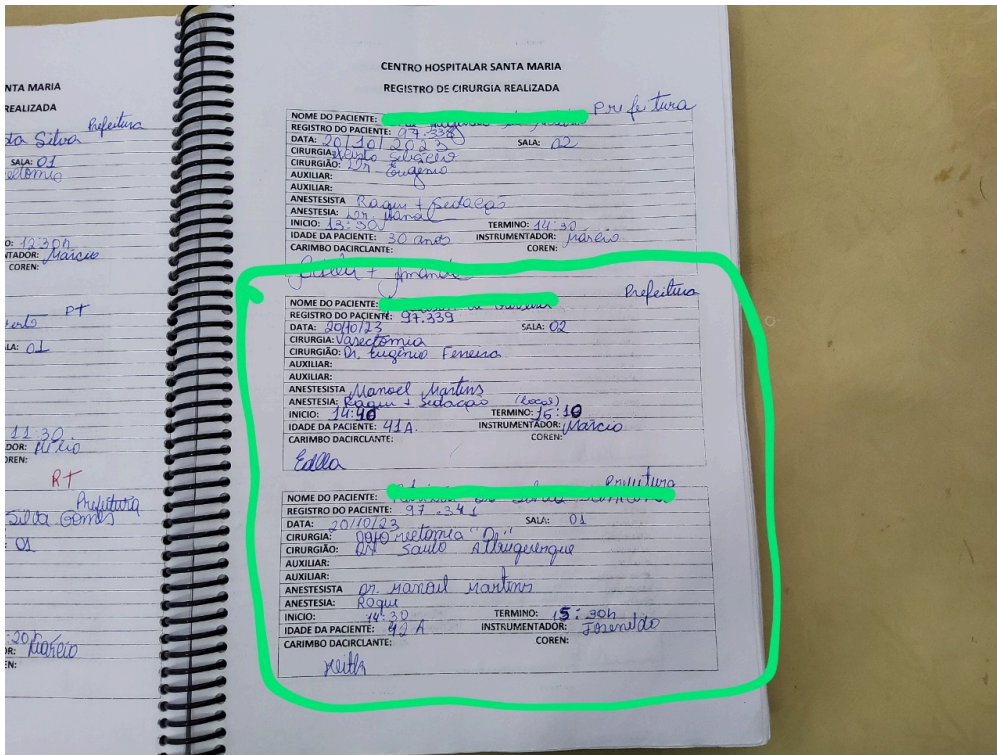 NTA MARIA
REALIZADA
Prefeitura
Silva
SALA: 01
12:30h
TADOR: Márcio
COREN:
PT
LA: 01
11:30
DOR:
OREN:
RT
Prefeitura
Silva Gomes
: 01
:20h
OR: Márcio
EN:
CENTRO HOSPITALAR SANTA MARIA
REGISTRO DE CIRURGIA REALIZADA
Prefeitura
NOME DO PACIENTE:
REGISTRO DO PACIENTE: 97.338
DATA: 20/10/2023 SALA: 02
CIRURGIA:
CIRURGIÃO: Dr Eugênio
AUXILIAR:
AUXILIAR:
ANESTESISTA Raqui + Sedação
ANESTESIA: Dr. Manoel
INICIO: 13:30 TERMINO: 14:30
IDADE DA PACIENTE: 30 anos INSTRUMENTADOR: Márcio
CARIMBO DACIRCLANTE: COREN:
+ Amanda
Prefeitura
NOME DO PACIENTE:
REGISTRO DO PACIENTE: 97.339
DATA: 20/10/23 SALA: 02
CIRURGIA: Vasectomia
CIRURGIÃO: Dr. Eugênio Ferreira
AUXILIAR:
AUXILIAR:
ANESTESISTA Manoel Martins
ANESTESIA: Raqui + Sedação (Local)
INICIO: 14:40 TERMINO: 15:10
IDADE DA PACIENTE: 41A. INSTRUMENTADOR: Márcio
CARIMBO DACIRCLANTE: COREN:
Edlla
Prefeitura
NOME DO PACIENTE:
REGISTRO DO PACIENTE: 97.341
DATA: 20/10/23 SALA: 01
CIRURGIA: "D"
CIRURGIÃO: DR Saulo Albuquerque
AUXILIAR:
AUXILIAR:
ANESTESISTA Dr. Manoel Martins
ANESTESIA: Raqui
INICIO: 14:30 TERMINO: 15:30h
IDADE DA PACIENTE: 42 A INSTRUMENTADOR: Josenildo
CARIMBO DACIRCLANTE: COREN: